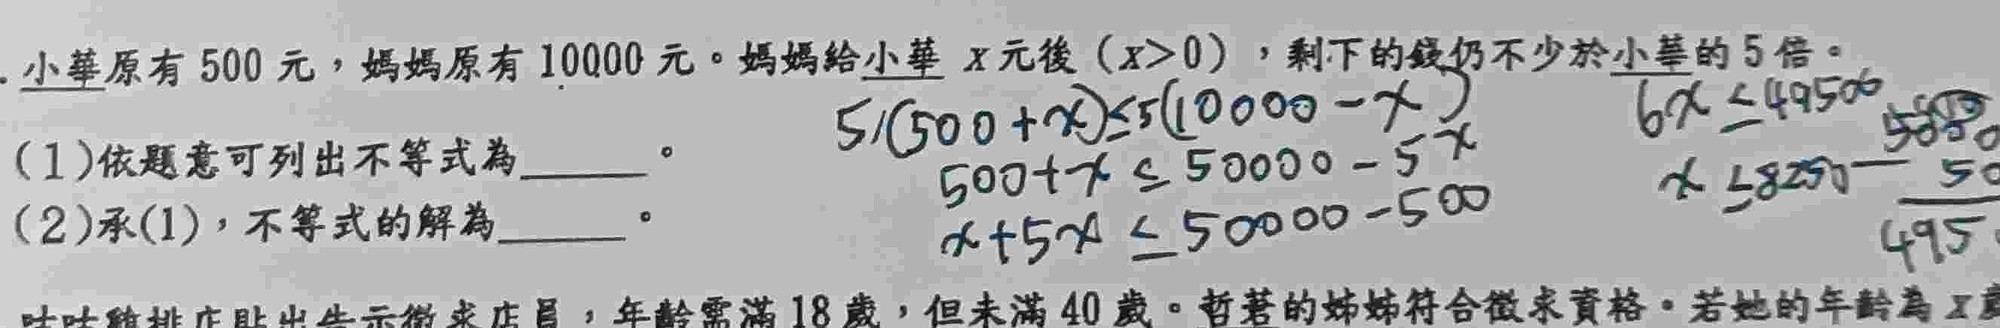 . 小華原有 500 元，媽媽原有 10000 元。媽媽給小華 x 元後（x>0），剩下的錢仍不少於小華的 5 倍。
5/(500+x)≤5(10000-x)
6x≤49500
(1)依題意可列出不等式為______。
500+x≤50000-5x
x≤8250
(2)承(1)，不等式的解為______。
x+5x≤50000-500
495
咕咕雞排店貼出告示徵求店員，年齡需滿 18 歲，但未滿 40 歲。哲荖的姊姊符合徵求資格。若她的年齡為 x 歲